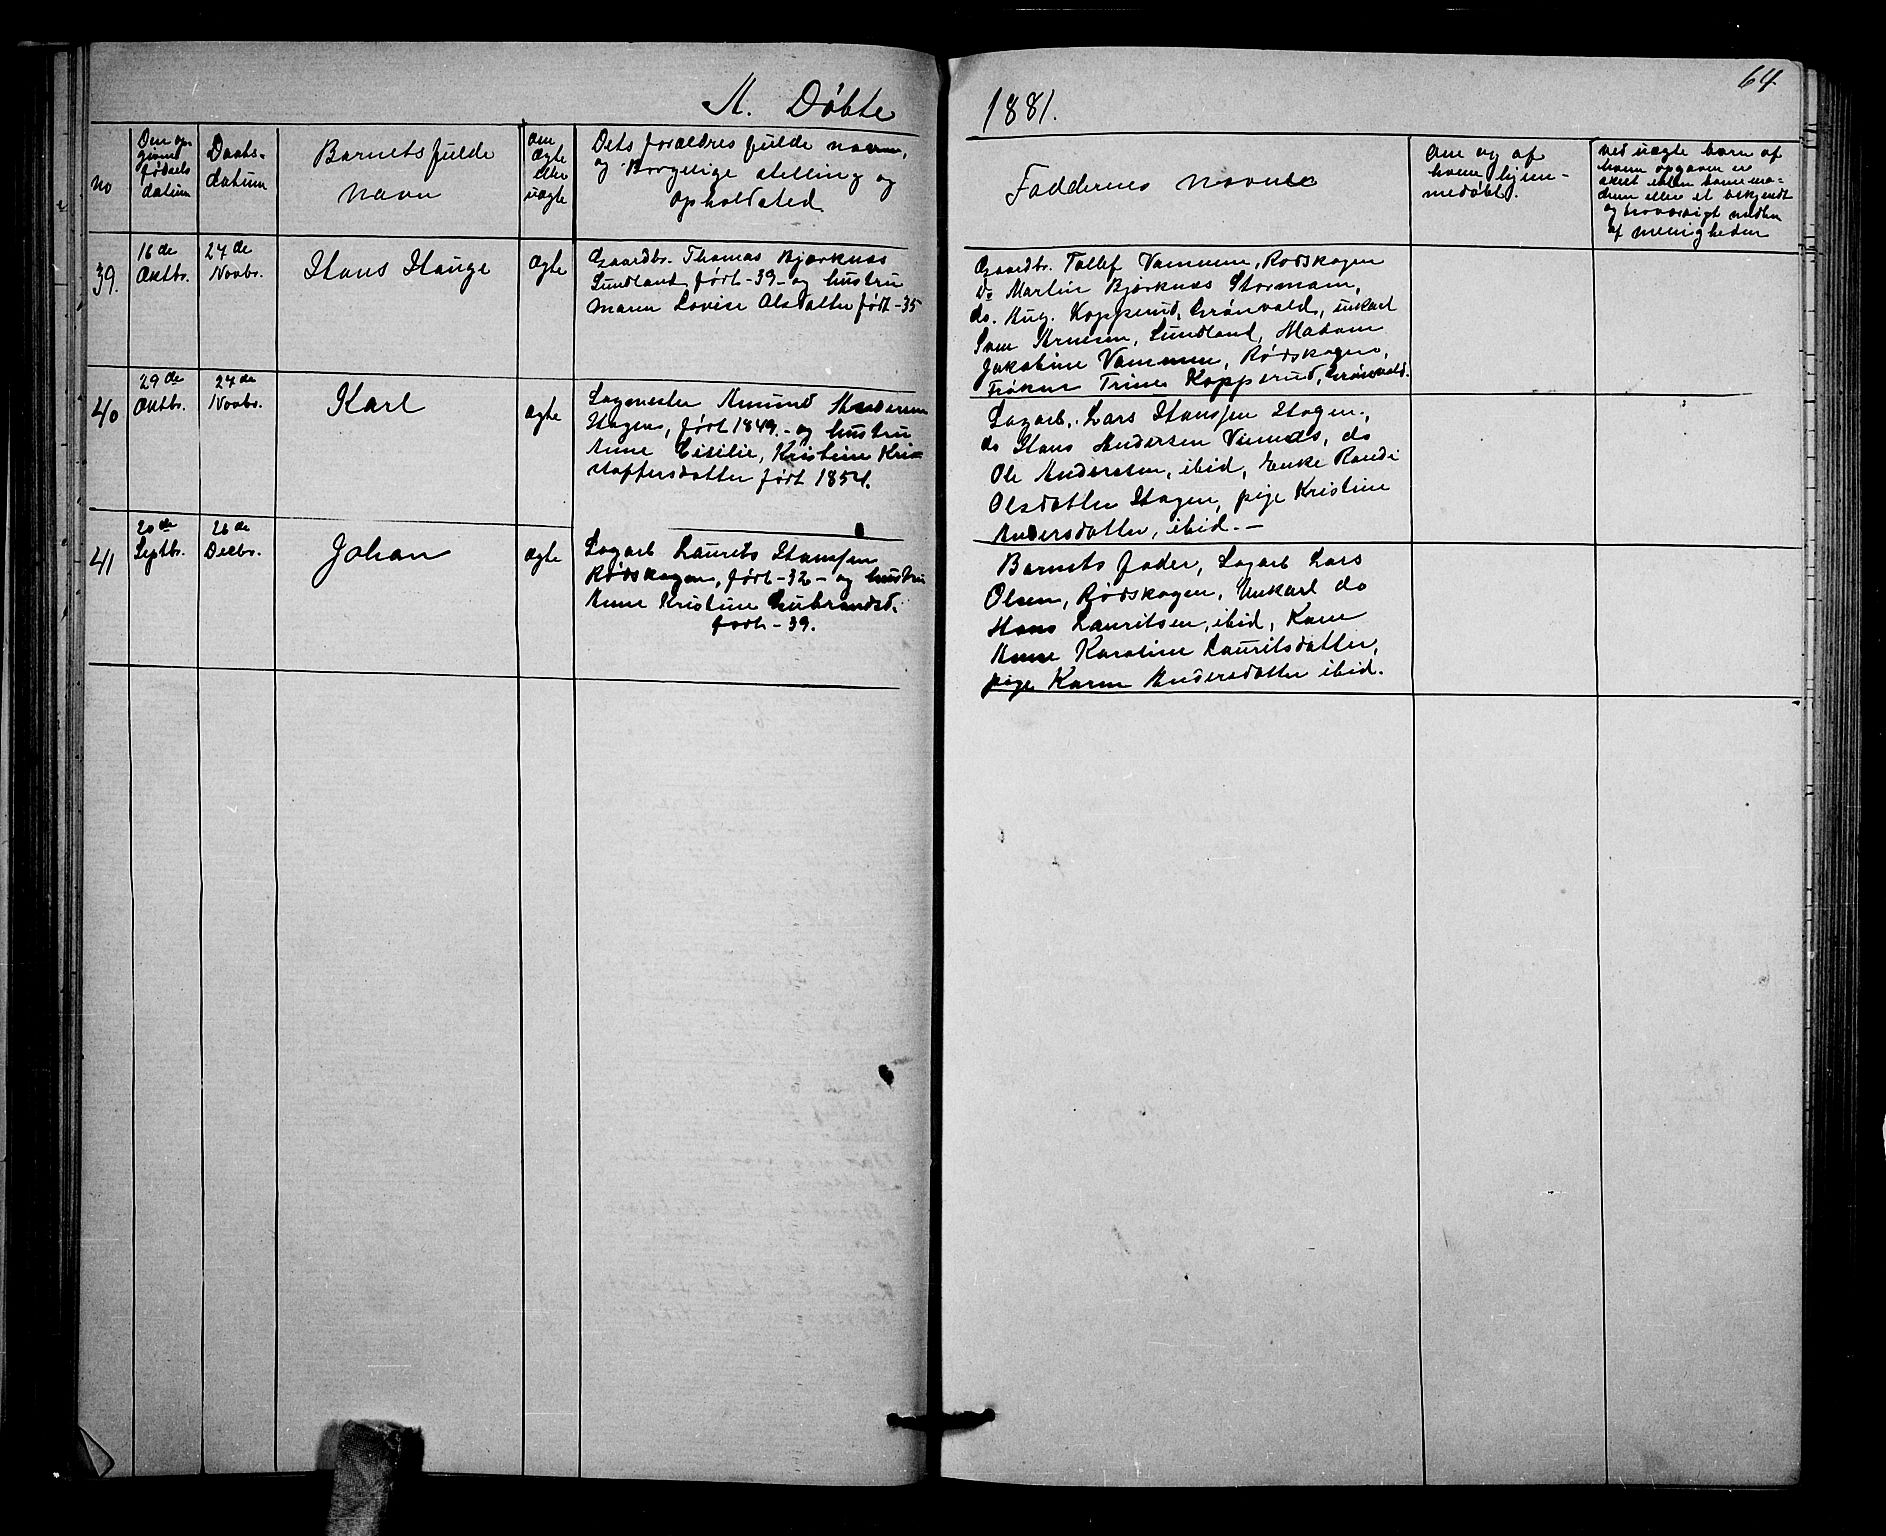 A. Døbte
1881.
64
no
Den op-
givne
fødsels
datum
Daabs-
datum
Barnets fulde
navn
om
ægte
eller
uægte
Dets forældres fulde navn,
og Borgelige stilling og
opholdsted
Faddernes navne
om og af
hvem hjem-
medøbt.
ved uægte børn af
hvem opgaven er
skeet enten barne mo-
deren eller et bekjendt
og troværdigt medlem
af menigheden
39.
16de
Oktbr.
24de
Novbr.
Hans Hauge
ægte
Gaardbr. Thomas Bjørknæs
Sundland, født -39- og hustru
Maren Lovise Olsdatter født -35
Gaardbr. Tollef Vammen, Rødskogen
Do Martin Bjørknæs Stormoen,
do. Aug. Kopperud, Grønvald, unkarl
Sven Arnesen, Sundland, Madam
Jakobine Vammen, Rødskogen,
Frøken Trine Kopperud, Grønvald.
40
29de
Oktbr.
24de
Novbr.
Karl
ægte
Sagmester Amund Andersen
Hagen, født 1849.- og hustru
Anne Cicilie, Kristine Kri-
stoffersdatter født 1854.
Sagarb. Lars Hansen Hagen.,
do Hans Andersen Viemds, do
Ole Andersen, ibid, Enke Randi
Olsdatter Hagen, pige Kristine
Andersdatter, ibid.-
41
20de
Septbr.
26de
Decbr.
Johan
ægte
Sagarb Laurits Hansen
Rødskogen, født -32- og hustru
Anne Kristine Gubrandsd.
født -39.
Barnets fader, Sagarb Lars
Olsen, Rødskogen, Unkarl do
Hans Lauritsen, ibid, Kone
Anne Karoline Lauritsdatter,
pige Karen Andersdatter ibid.